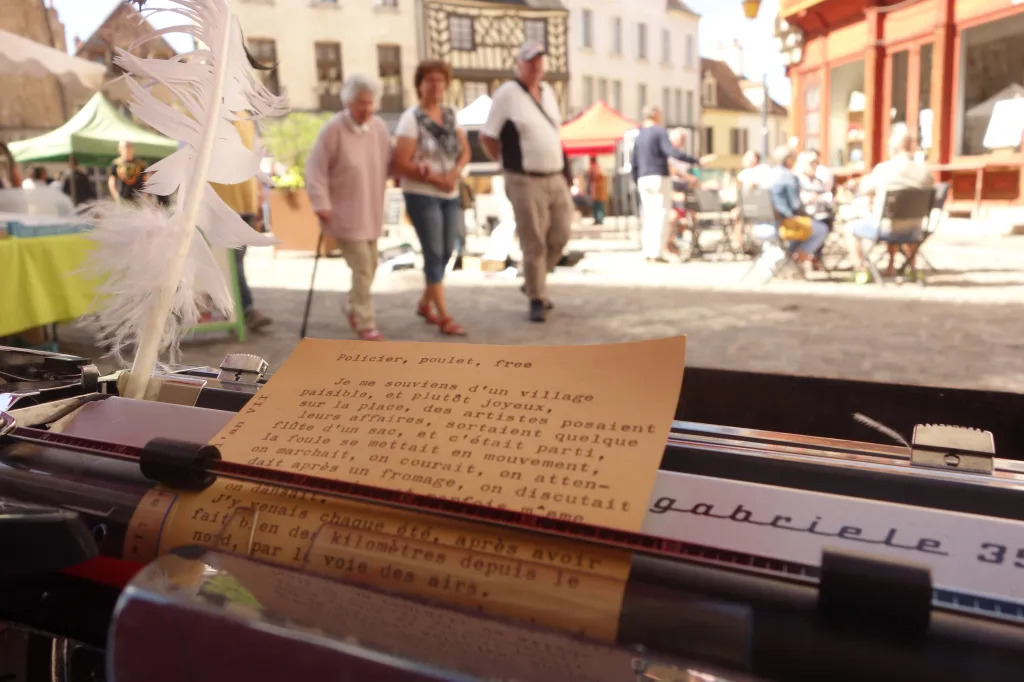 Policier, poulet, free
Je me souviens d'un village
paisible, et plutôt joyeux,
sur la place, des artistes posaient
leurs affaires, sortaient quelque
flûte d'un sac, et c'était parti,
la foule se mettait en mouvement,
on marchait, on courait, on atten-
dait après un fromage, on discutait
on dansait,
J'y venais chaque été, après avoir
fait bien des kilomètres depuis le
nord, par la voie des airs.
gabriele 35